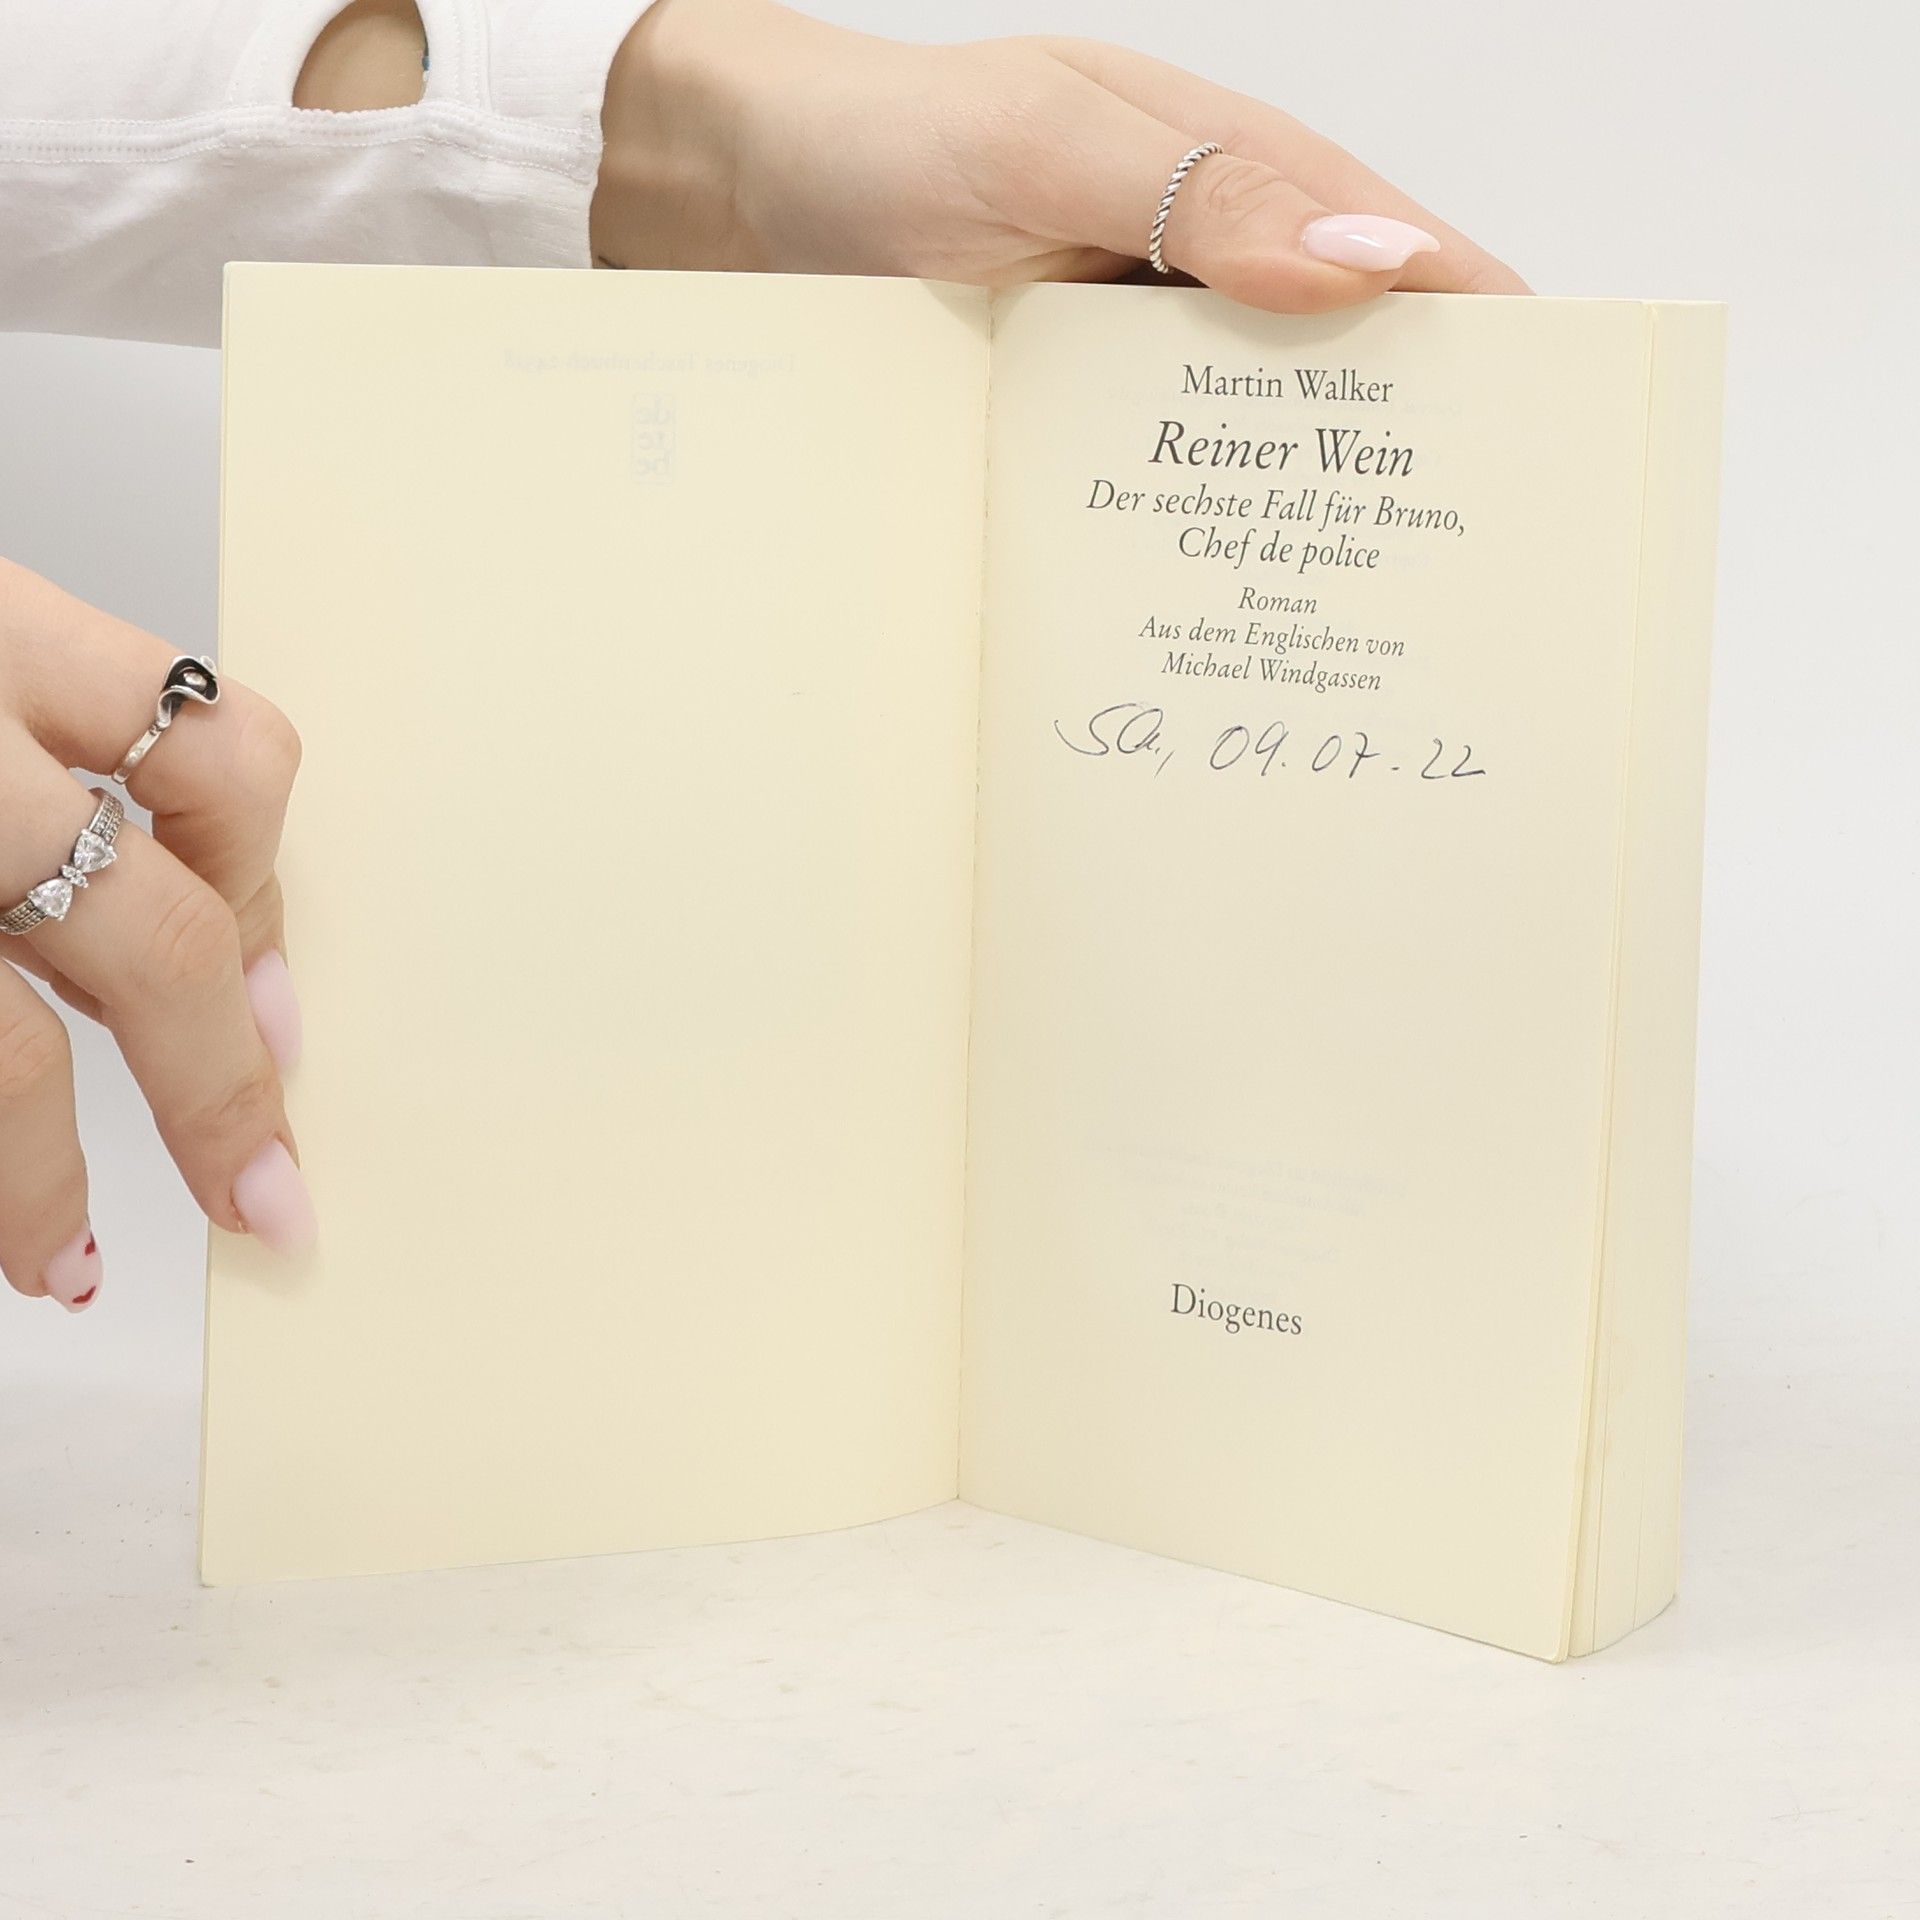 Martin Walker
Reiner Wein
Der sechste Fall für Bruno,
Chef de police
Roman
Aus dem Englischen von
Michael Windgassen
Sa., 09.07.22
Diogenes